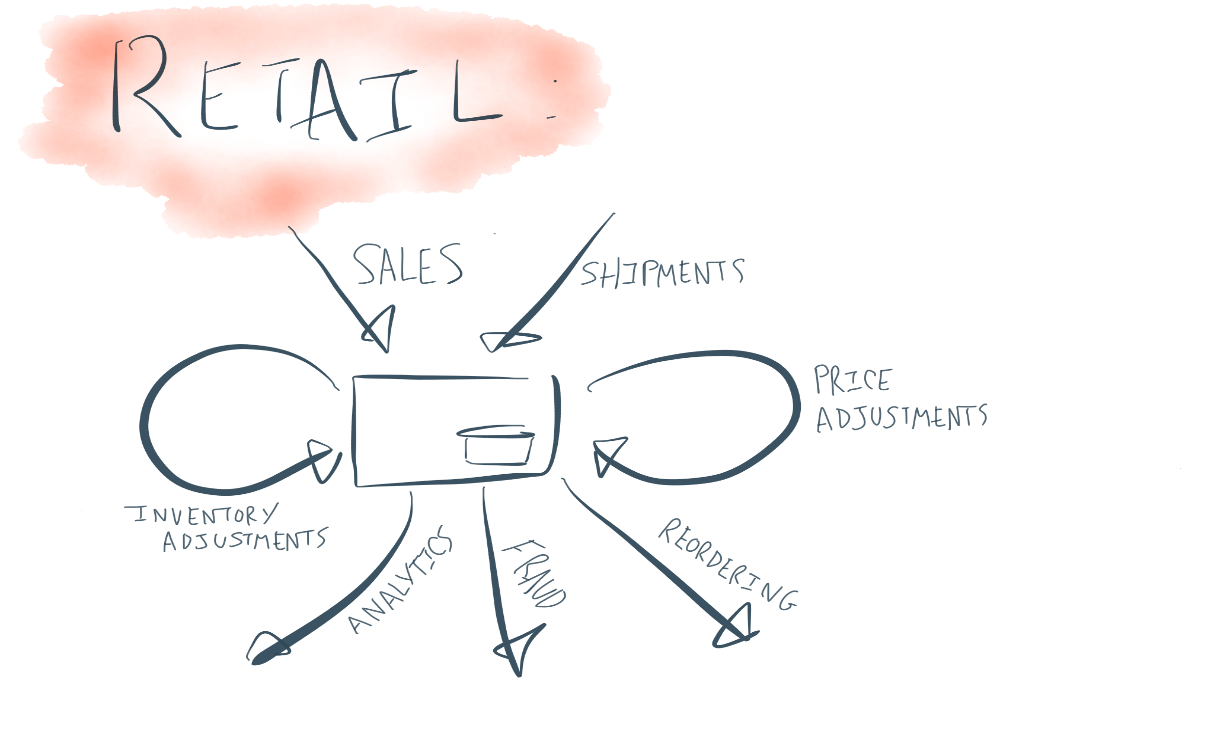 RETAIL:
SALES
SHIPMENTS
PRICE
ADJUSTMENTS
INVENTORY
ADJUSTMENTS
ANALYTICS
FRAUD
REORDERING